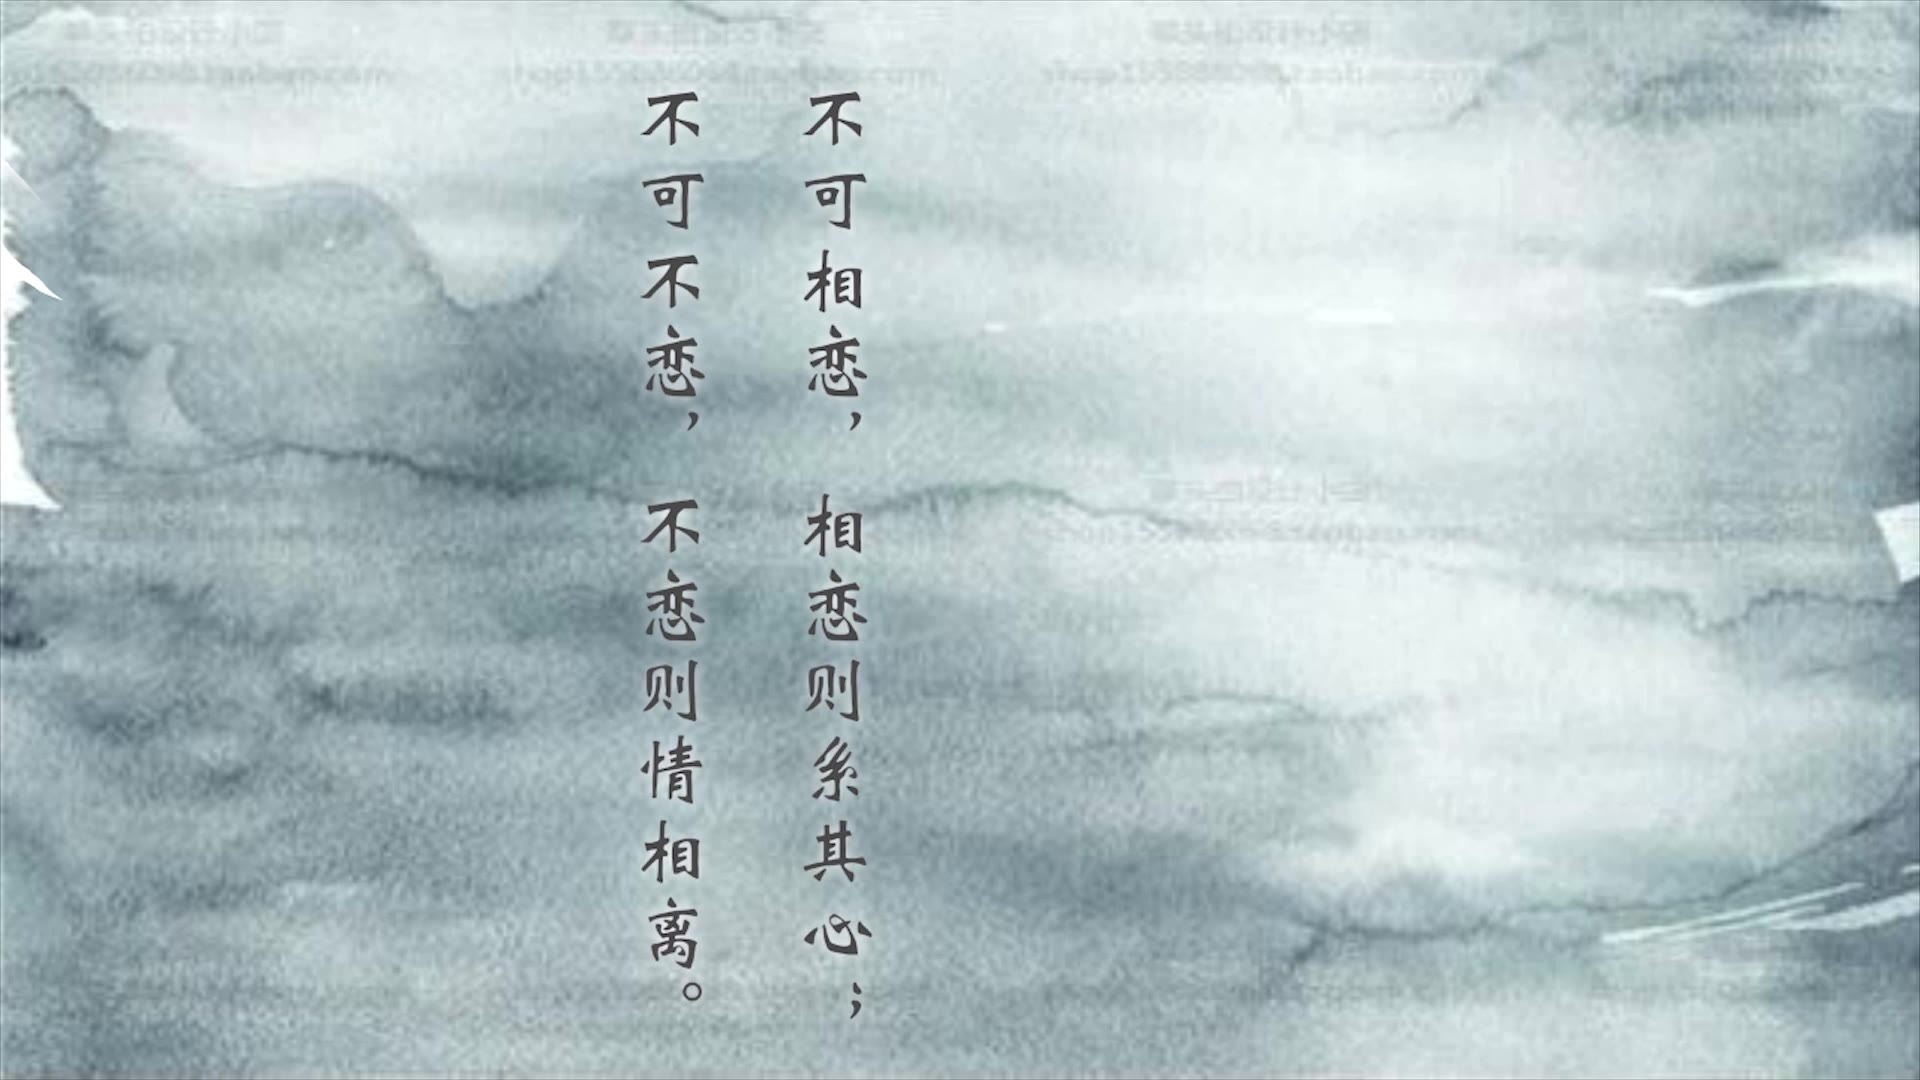 不可相恋，相恋则系其心；
不可不恋，不恋则情相离。